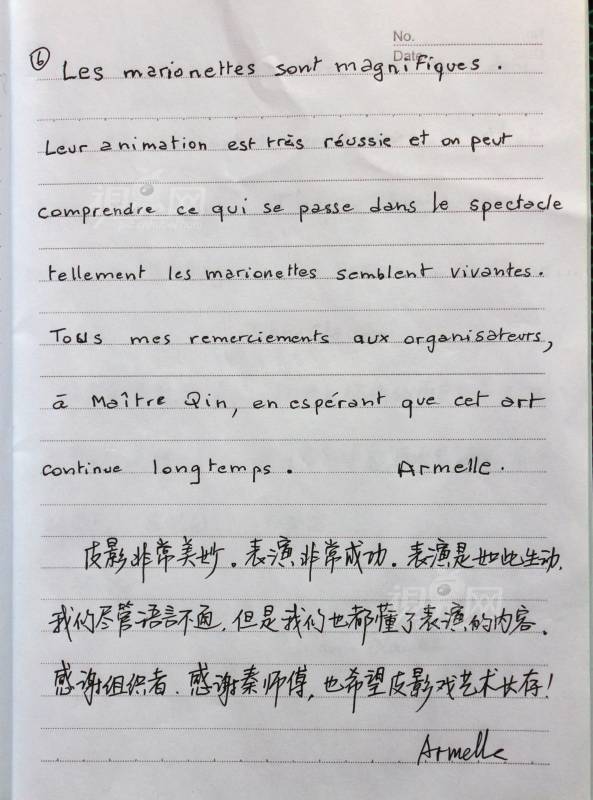 No.
Date
⑥ Les marionettes sont magnifiques.
Leur animation est très réussie et on peut
comprendre ce qui se passe dans le spectacle
tellement les marionettes semblent vivantes.
Tous mes remerciements aux organisateurs,
à Maître Qin, en espérant que cet art
continue longtemps. Armelle.
皮影非常美妙。表演非常成功。表演是如此生动,
我们尽管语言不通,但是我们也都懂了表演的内容。
感谢组织者、感谢秦师傅,也希望皮影戏艺术长存!
Armelle